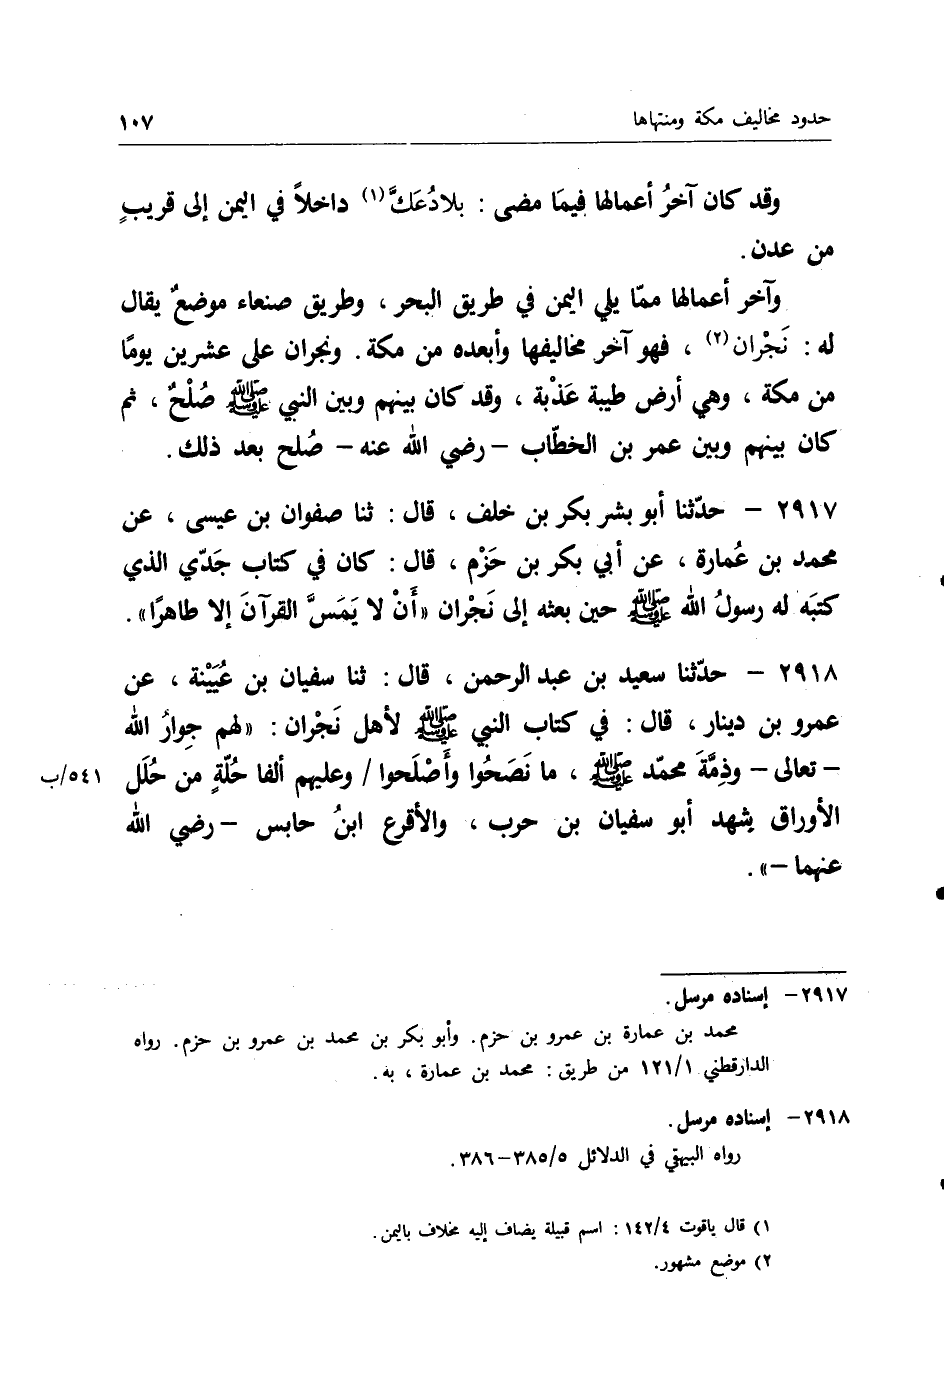 حدود مخاليف مكة ومنتهاها ١٠٧
وقد كان آخرُ أعمالها فيمَا مضى : بلادُعَكَّ(١) داخلاً في اليمن إلى قريبٍ
من عدن .
وآخر أعمالها ممّا يلي اليمن في طريق البحر ، وطريق صنعاء موضعٌ يقال
له : نَجْران(٢) ، فهو آخر مخاليفها وأبعده من مكة. ونجران على عشرين يومًا
من مكة ، وهي أرض طيبة عَذْبة ، وقد كان بينهم وبين النبي ﷺ صُلْحٌ ، ثم
كان بينهم وبين عمر بن الخطّاب – رضي الله عنه – صُلح بعد ذلك.
٢٩١٧ – حدّثنا أبو بشر بكر بن خلف ، قال : ثنا صفوان بن عيسى ، عن
محمد بن عُمارة ، عن أبي بكر بن حَزْم ، قال : كان في كتاب جَدّي الذي
كتبَه له رسولُ الله ﷺ حين بعثه إلى نَجْران «أَنْ لا يَمَسَّ القرآنَ إلا طاهرًا».
٢٩١٨ – حدّثنا سعيد بن عبد الرحمن ، قال : ثنا سفيان بن عُيَيْنة ، عن
عمرو بن دينار ، قال : في كتاب النبي ﷺ لأهل نَجْران : «لهم جِوارُ الله
– تعالى – وذِمَّةَ محمّد ﷺ ، ما نَصَحُوا وأَصْلَحوا / وعليهم ألفا حُلّةٍ من حُلَل ٥٤١/ب
الأوراق يشهد أبو سفيان بن حرب ، والأقرع ابنُ حابس – رضي الله
عنهما –» .
٢٩١٧ – إسناده مرسل.
محمد بن عمارة بن عمرو بن حزم. وأبو بكر بن محمد بن عمرو بن حزم. رواه
الدارقطني ١٢١/١ من طريق : محمد بن عمارة ، به.
٢٩١٨ – إسناده مرسل.
رواه البيهقي في الدلائل ٣٨٥/٥–٣٨٦.
١) قال ياقوت ١٤٢/٤ : اسم قبيلة يضاف إليه مخلاف باليمن.
٢) موضع مشهور.